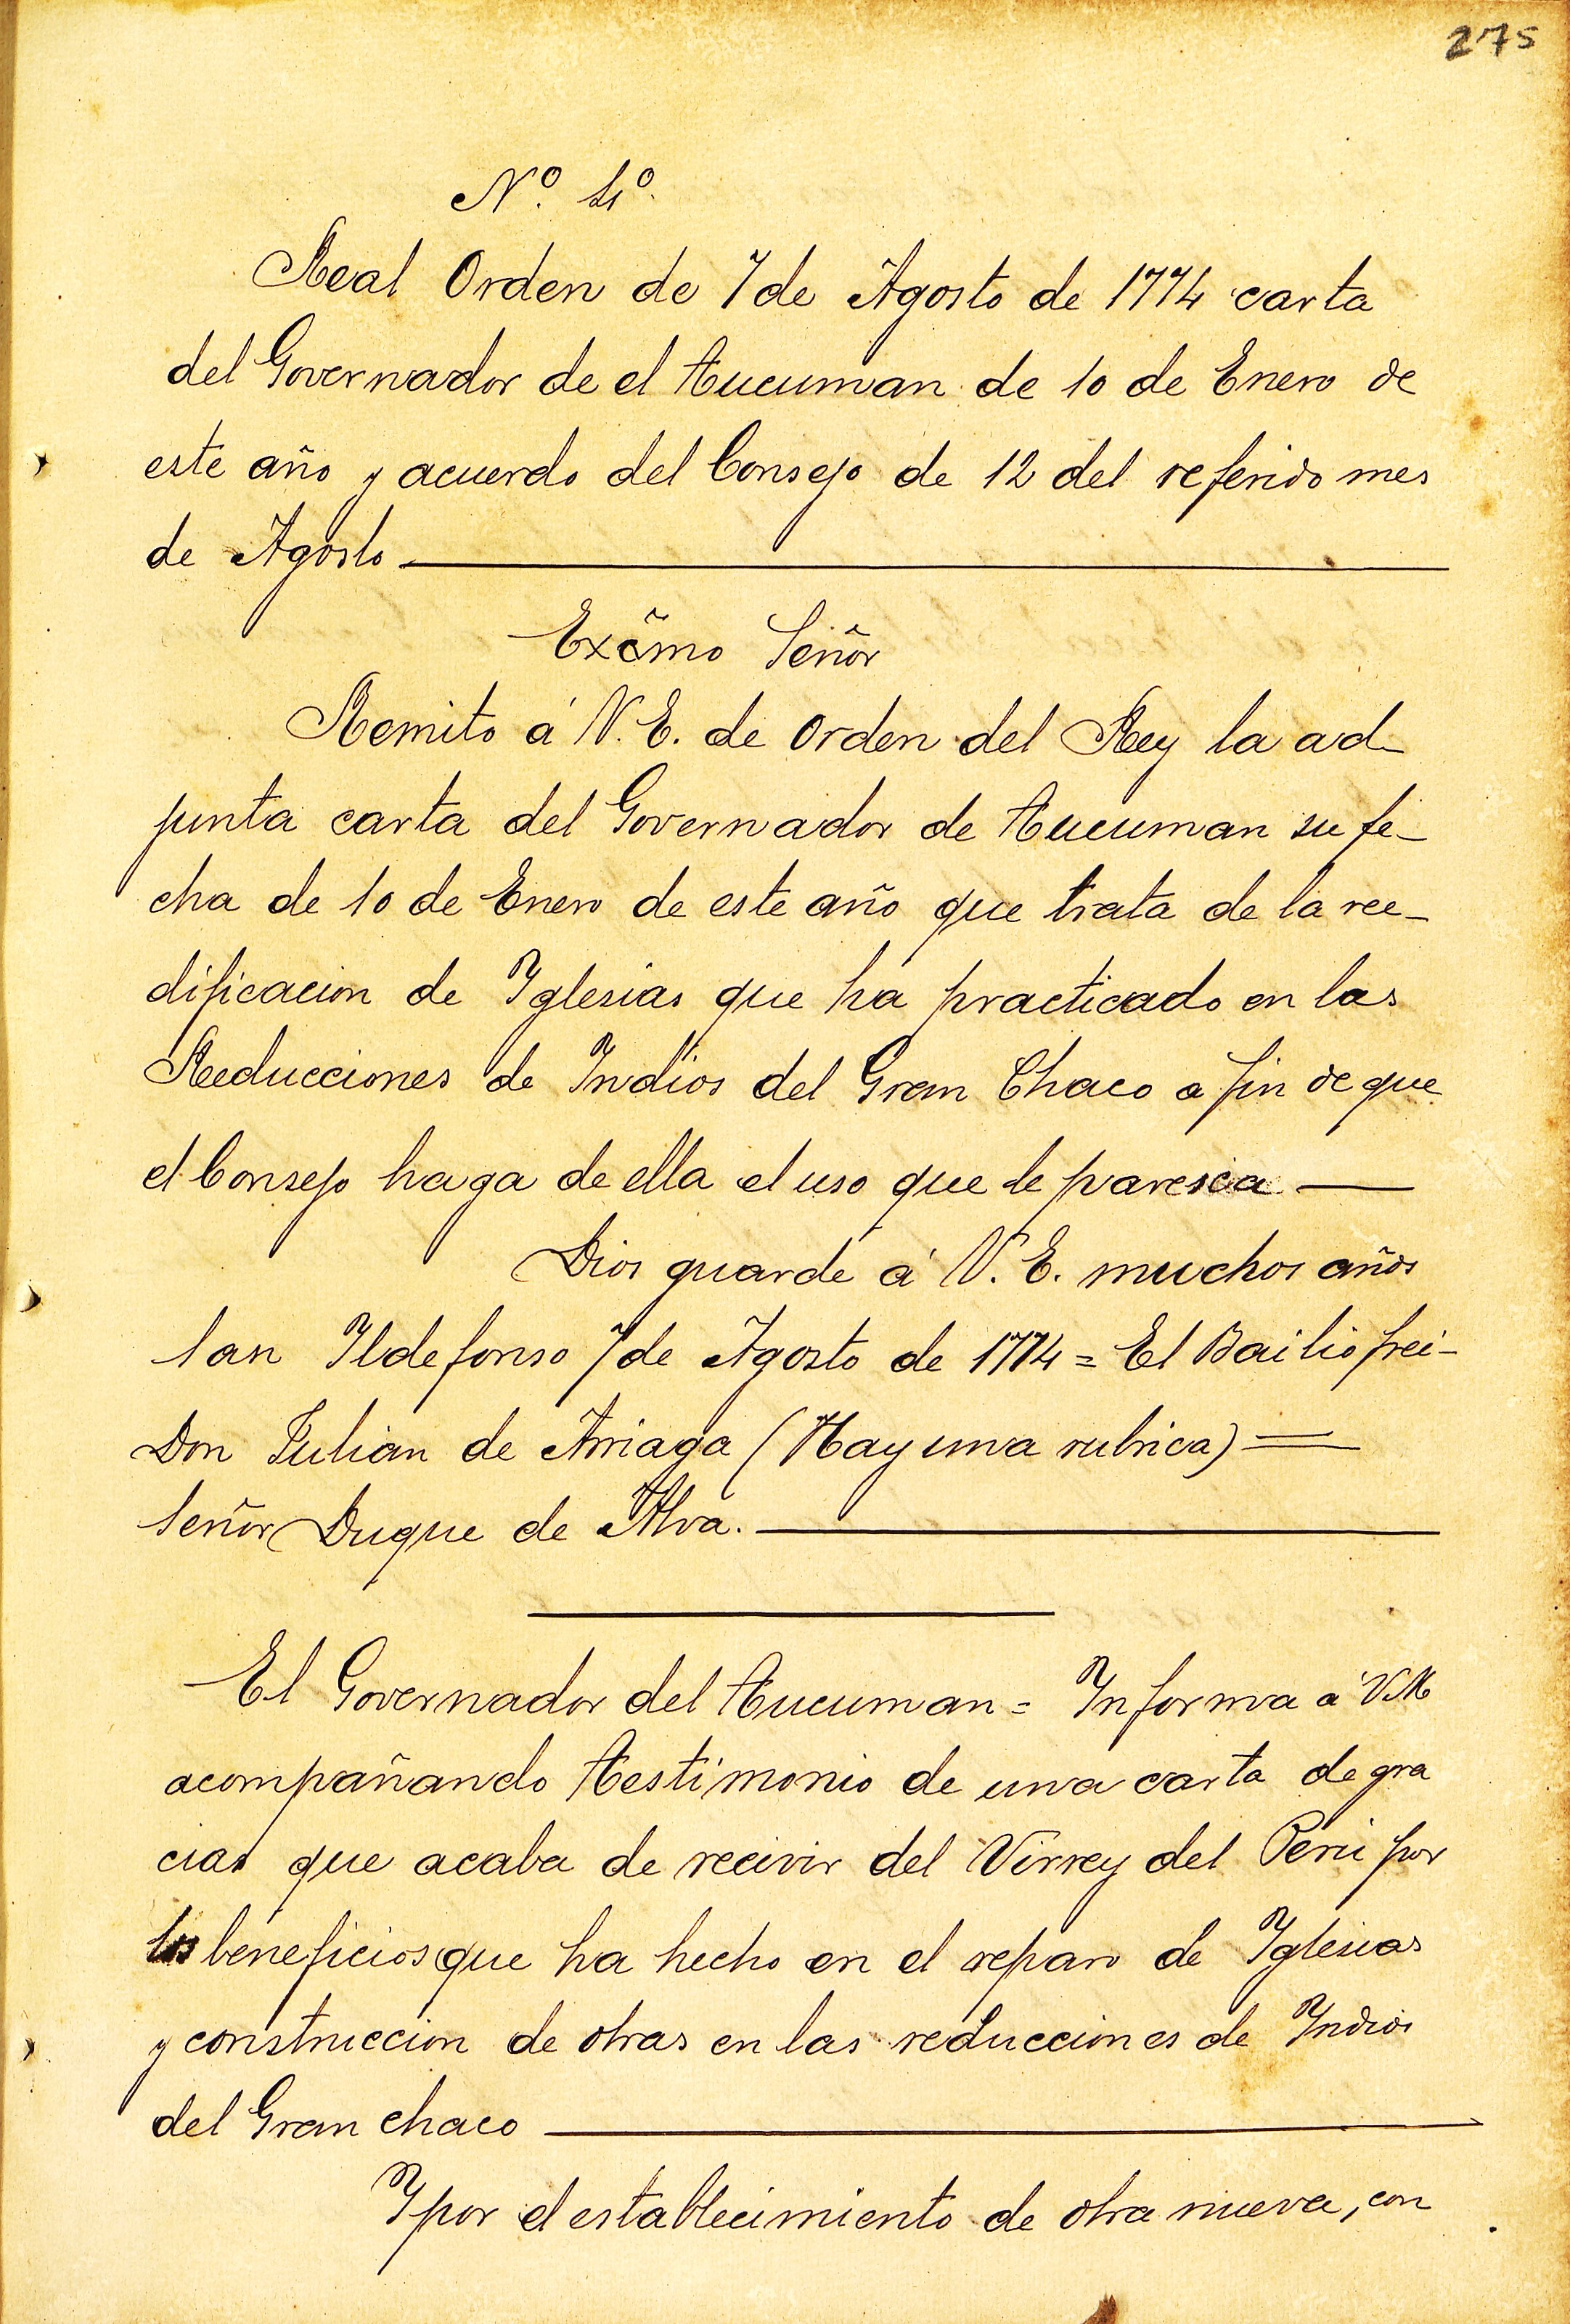 275
Nº. 4º.
Real Orden de 7 de Agosto de 1774 carta
del Governador de el Tucuman de 10 de Enero de
este año y acuerdo del Consejo de 12 del referido mes
de Agosto
Exc̃mo Señor
Remito á V. E. de orden del Rey la ad-
junta carta del Governador de Tucuman su fe-
cha de 10 de Enero de este año que trata de la ree-
dificacion de Yglesias que ha practicado en las
Reducciones de Yndios del Gran Chaco a fin de que
el Consejo haga de ella el uso que le paresca
Dios guarde á V. E. muchos años
San Yldefonso 7 de Agosto de 1774 = El Bailio frei-
Don Julian de Arriaga (Hay una rubrica) =
Señor Duque de Alva.
El Governador del Tucuman = Ynforma a VM
acompañando Testimonio de una carta de gra
cias que acaba de recivir del Virrey del Perú por
los beneficios que ha hecho en el reparo de Yglesias
y construccion de otras en las reducciones de Yndios
del Gran chaco
Y por el establecimiento de otra nueva, con